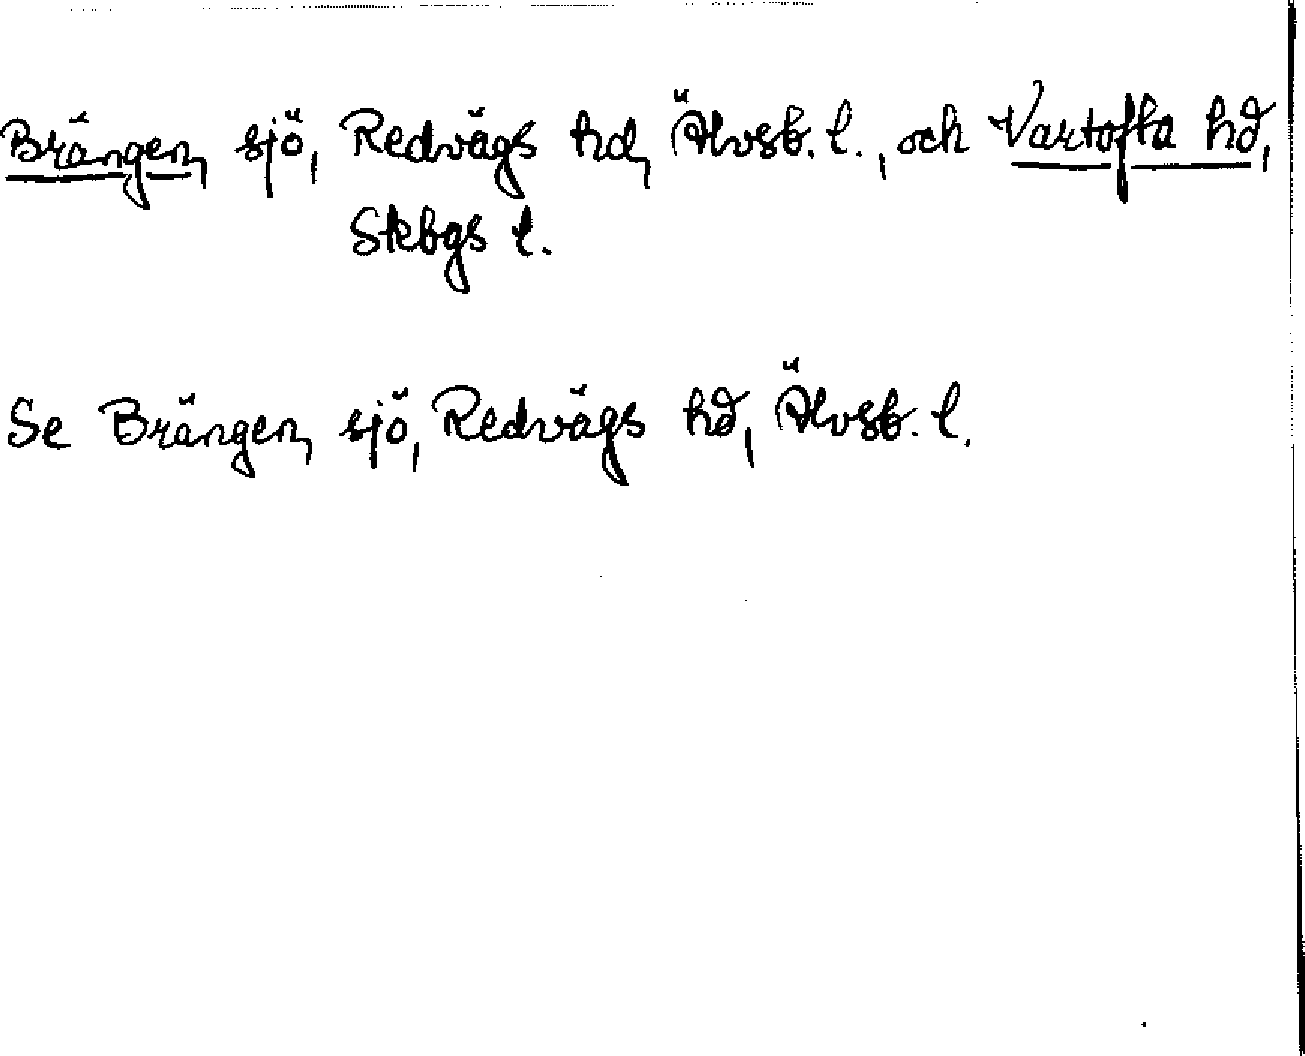 Brängen, sjö, Redvägs hd, Älvsb. l., och Vartofta hd,
Skbgs l.
Se Brängen, sjö, Redvägs hd, Älvsb. l.